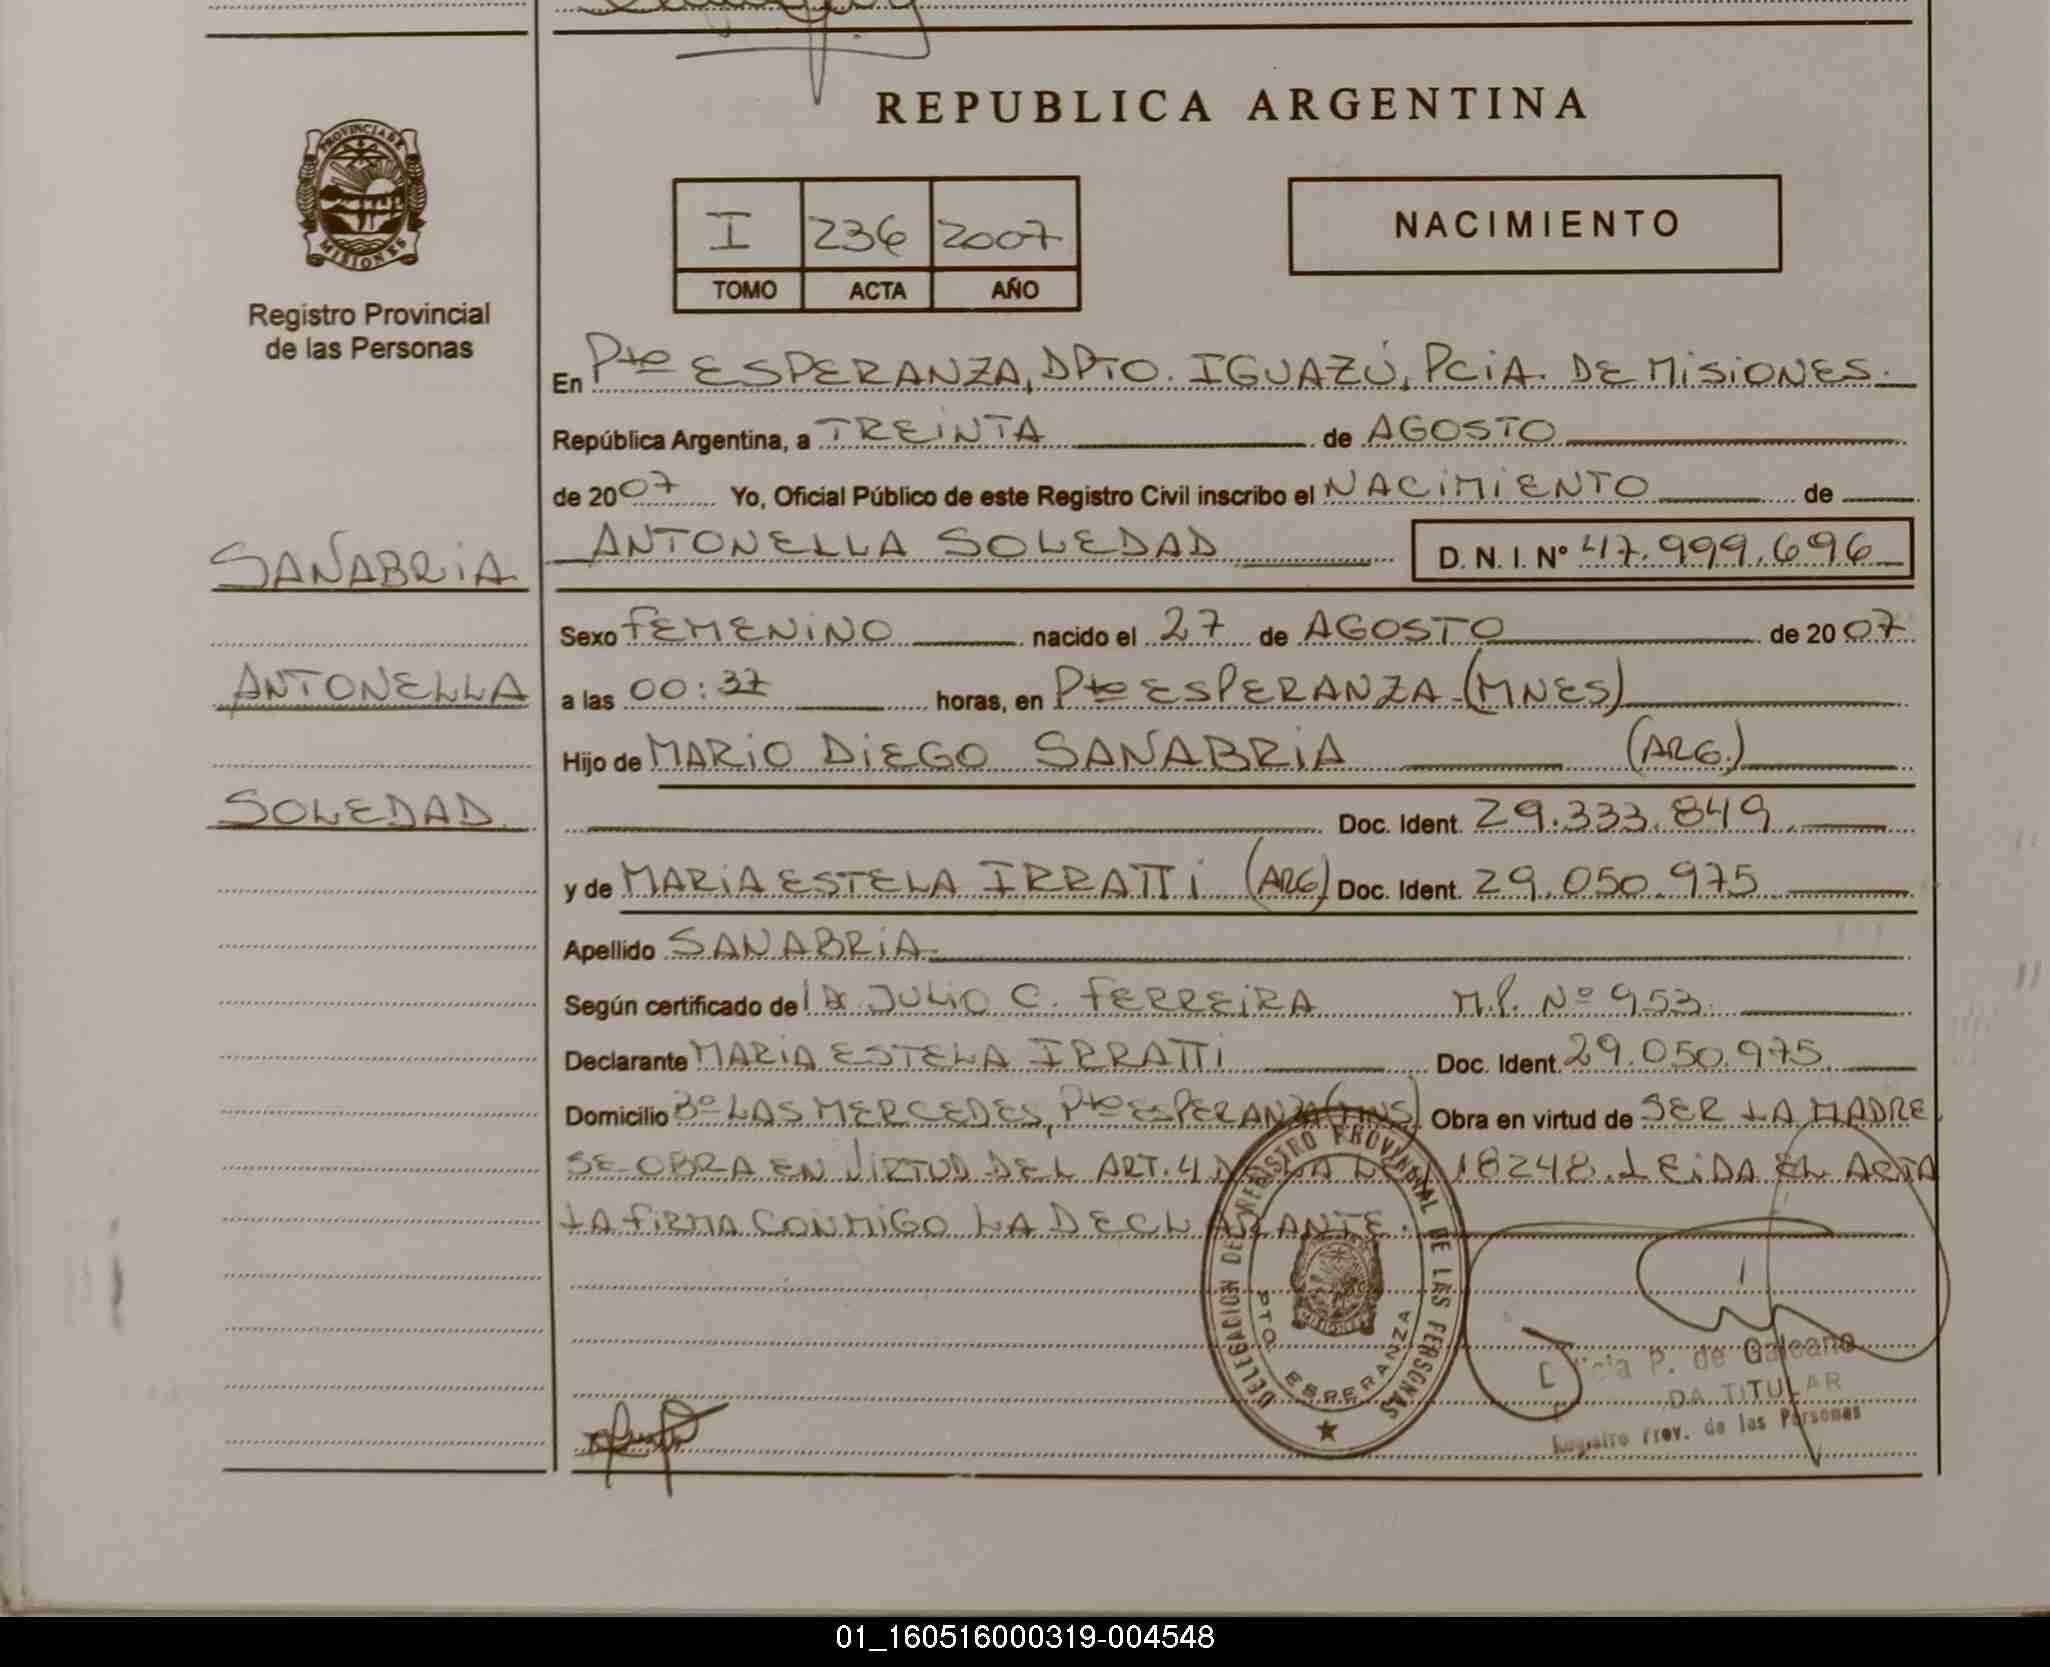 REPUBLICA ARGENTINA
PROVINCIA DE MISIONES
Registro Provincial
de las Personas
I 236 2007
TOMO ACTA AÑO
NACIMIENTO
En Pto ESPERANZA, DPTO. IGUAZÚ, PCIA. DE MISIONES.
República Argentina, a TREINTA de AGOSTO
de 2007 Yo, Oficial Público de este Registro Civil inscribo el NACIMIENTO de
SANABRIA
ANTONELLA SOLEDAD D. N. I. Nº 47.999.696
Sexo FEMENINO nacido el 27 de AGOSTO de 2007
ANTONELLA
a las 00:37 horas, en Pto ESPERANZA-(MNES)
Hijo de MARIO DIEGO SANABRIA (ARG.)
SOLEDAD
Doc. Ident. 29.333.849
y de MARIA ESTELA IRRATTI (ARG) Doc. Ident. 29.050.975
Apellido SANABRIA
Según certificado de JULIO C. FERREIRA M.P. Nº 953
Declarante MARIA ESTELA IRRATTI Doc. Ident. 29.050.975
Domicilio Bº LAS MERCEDES, Pto ESPERANZA (MNS) Obra en virtud de SER LA MADRE,
SE OBRA EN VIRTUD DEL ART. 4 DE LA LEY 18248. LEIDA EL ACTA
LA FIRMA CONMIGO LA DECLARANTE.
DELEGACION DEL REGISTRO PROVINCIAL DE LAS PERSONAS
PTO. ESPERANZA
MISIONES
P. de Galeano
TITULAR
Registro Prov. de las Personas
01_160516000319-004548